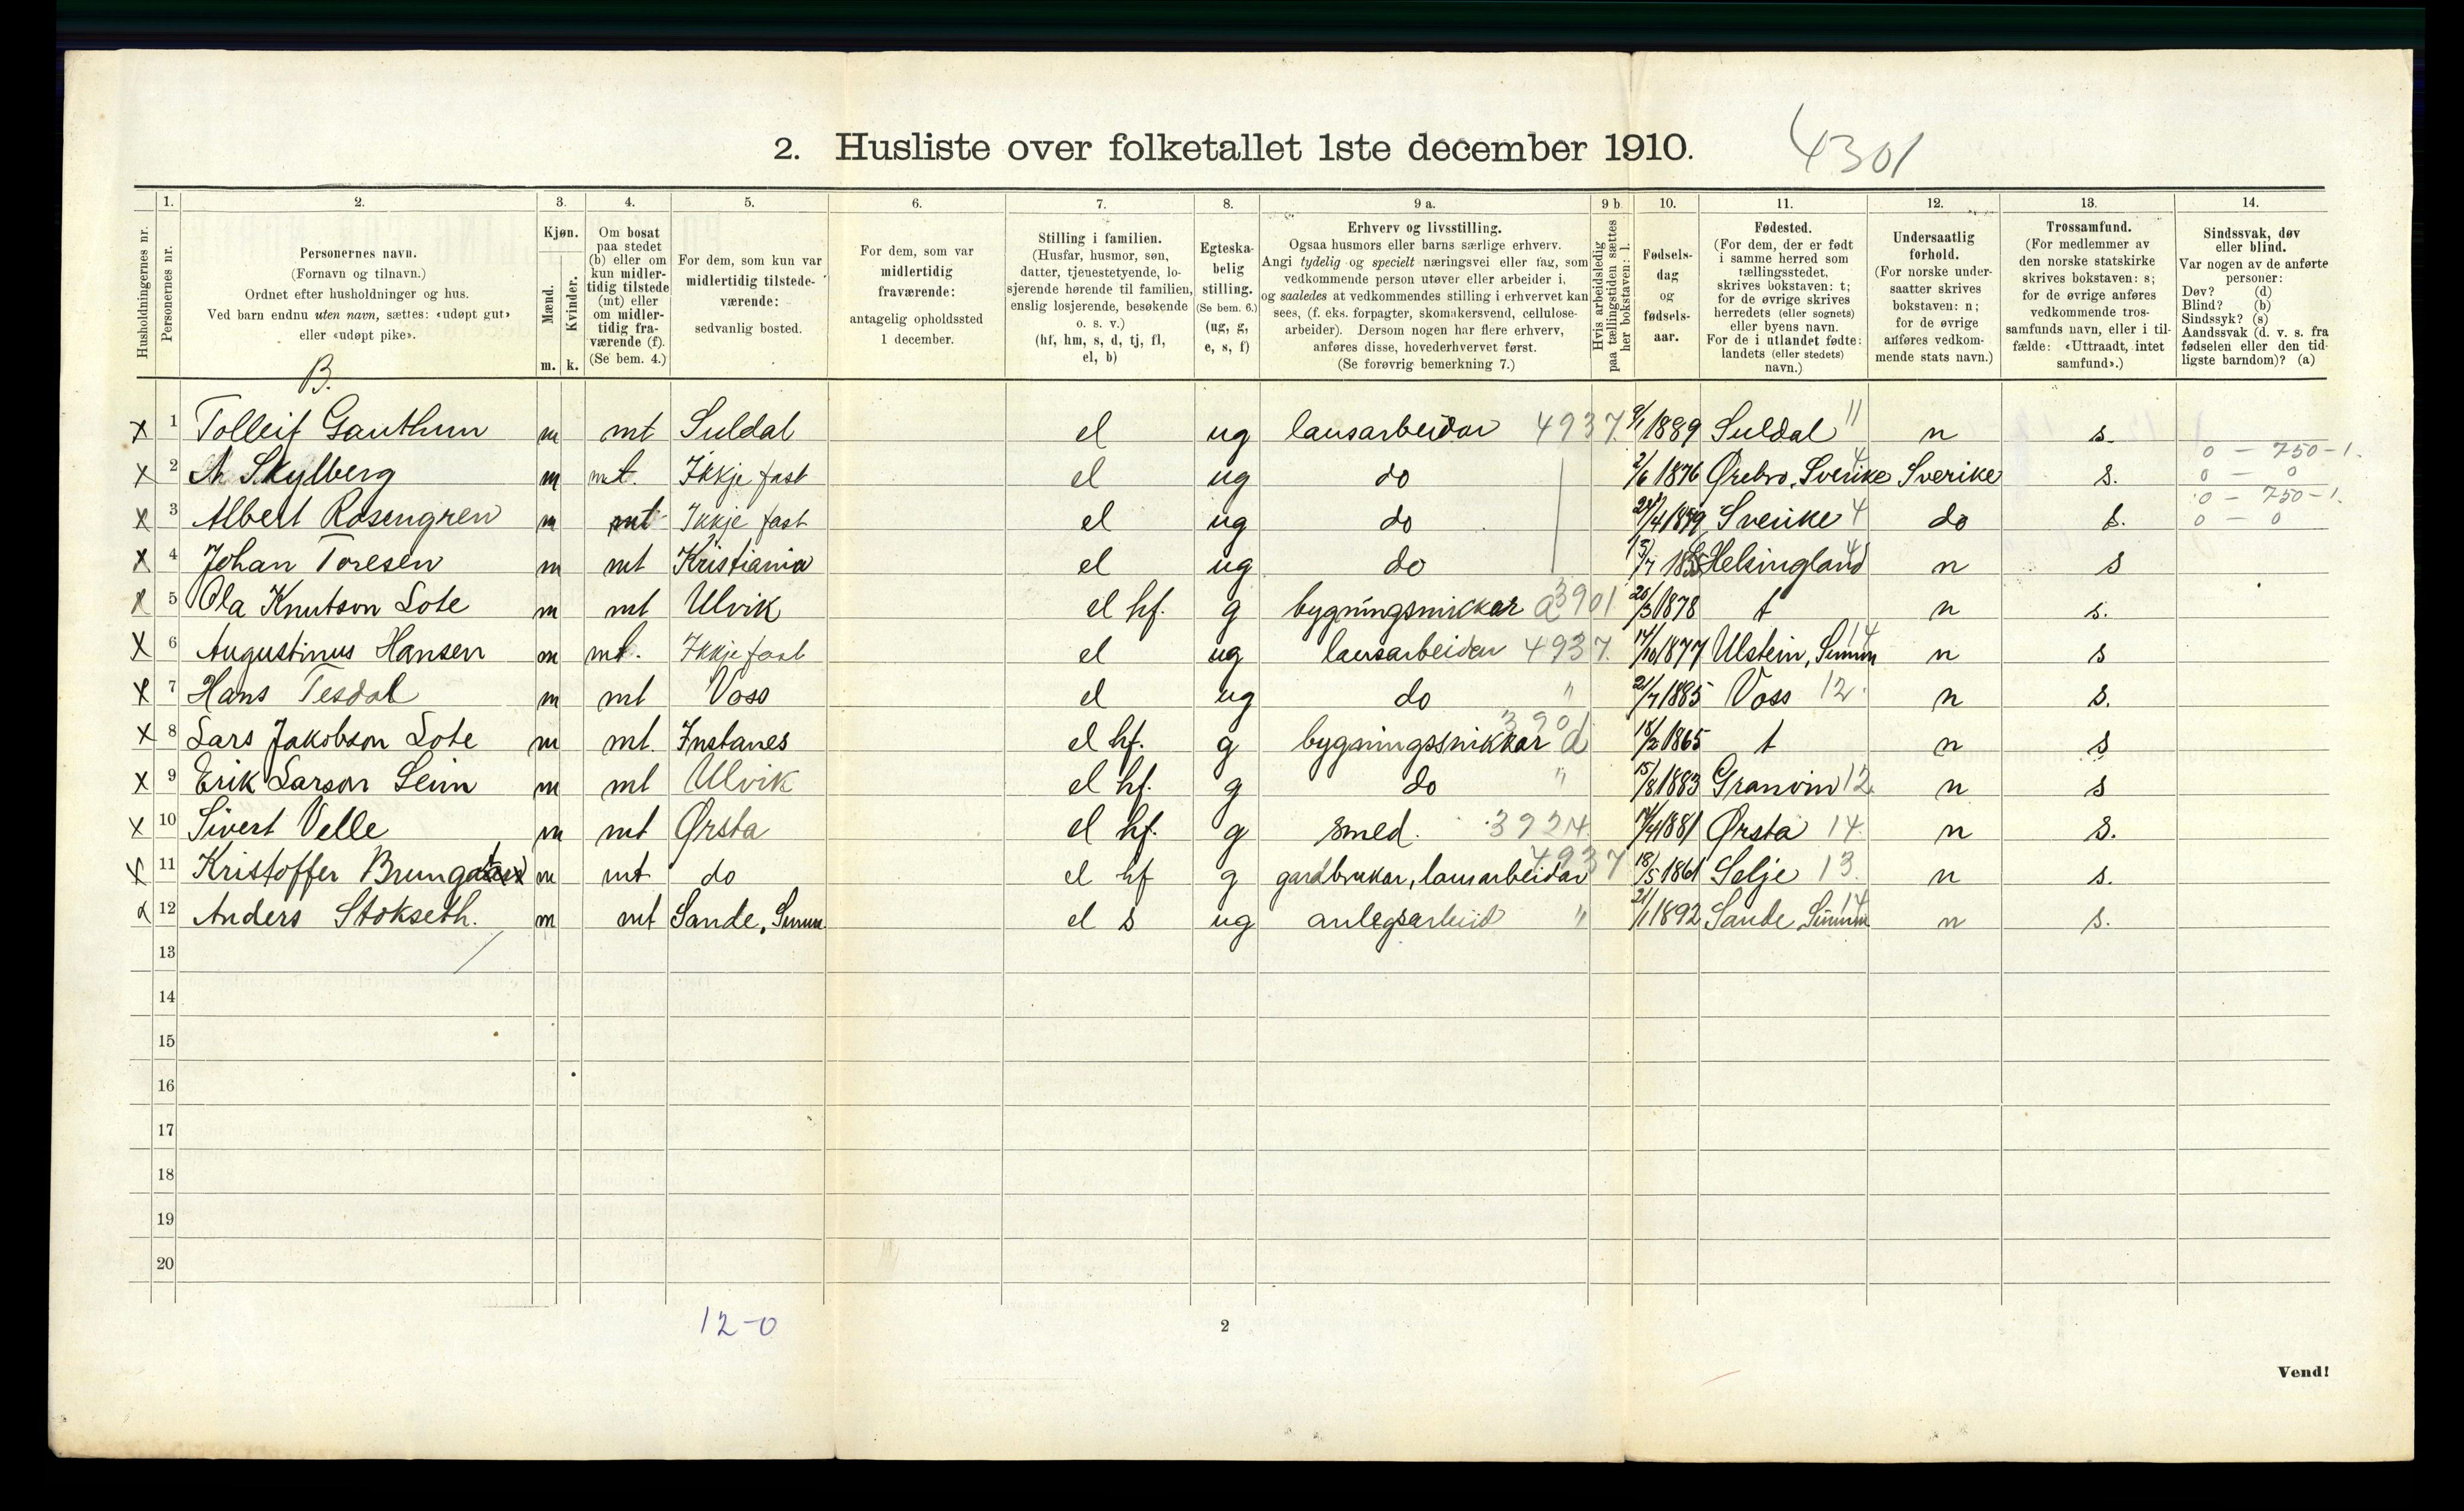 2. Husliste over folketallet 1ste december 1910.
4301
1. 2. 3. 4. 5. 6. 7. 8. 9 a. 9 b. 10. 11. 12. 13. 14.
Husholdningernes nr.
Personernes nr.
Personernes navn.
(Fornavn og tilnavn.)
Ordnet efter husholdninger og hus.
Ved barn endnu uten navn, sættes: «udøpt gut»
eller «udøpt pike».
B.
Kjøn.
Mænd.
Kvinder.
m. k.
Om bosat
paa stedet
(b) eller om
kun midler-
tidig tilstede
(mt) eller
om midler-
tidig fra-
værende (f).
(Se bem. 4.)
For dem, som kun var
midlertidig tilstede-
værende:
sedvanlig bosted.
For dem, som var
midlertidig
fraværende:
antagelig opholdssted
1 december.
Stilling i familien.
(Husfar, husmor, søn,
datter, tjenestetyende, lo-
sjerende hørende til familien,
enslig losjerende, besøkende
o. s. v.)
(hf, hm, s, d, tj, fl,
el, b)
Egteska-
belig
stilling.
(Se bem. 6.)
(ug, g,
e, s, f)
Erhverv og livsstilling.
Ogsaa husmors eller barns særlige erhverv.
Angi tydelig og specielt næringsvei eller fag, som
vedkommende person utøver eller arbeider i,
og saaledes at vedkommendes stilling i erhvervet kan
sees, (f. eks. forpagter, skomakersvend, cellulose-
arbeider). Dersom nogen har flere erhverv,
anføres disse, hovederhvervet først.
(Se forøvrig bemerkning 7.)
Hvis arbeidsledig
paa tællingstiden sættes
her bokstaven: l.
Fødsels-
dag
og
fødsels-
aar.
Fødested.
(For dem, der er født
i samme herred som
tællingsstedet,
skrives bokstaven: t;
for de øvrige skrives
herredets (eller sognets)
eller byens navn.
For de i utlandet fødte:
landets (eller stedets)
navn.)
Undersaatlig
forhold.
(For norske under-
saatter skrives
bokstaven: n;
for de øvrige
anføres vedkom-
mende stats navn.)
Trossamfund.
(For medlemmer av
den norske statskirke
skrives bokstaven: s;
for de øvrige anføres
vedkommende tros-
samfunds navn, eller i til-
fælde: «Uttraadt, intet
samfund».)
Sindssvak, døv
eller blind.
Var nogen av de anførte
personer:
Døv? (d)
Blind? (b)
Sindssyk? (s)
Aandssvak (d. v. s. fra
fødselen eller den tid-
ligste barndom)? (a)
x 1 Tolleif Gauthun m mt Suldal el ug lausarbeidar 4937. 9/1 1889 Suldal 11 n s.
0 — 750-1.
x 2 A. Skylberg m mt. Ikkje fast el ug do 2/6 1876 Ørebro, Sverike 4 Sverike s. 0 — 0
0 — 750-1.
x 3 Albert Rosengren m mt Ikkje fast el ug do Sverike 4 do s. 0 — 0
x 4 Johan Toresen m mt Kristiania el ug do Helsingland 4 n s
x 5 Ola Knutson Lote m mt Ulvik el hf. g bygningsnikkar a 3901. 20/3 1878 t n s.
x 6 Augustinus Hansen m mt. Ikkje fast el ug lausarbeidar 4937. 14/10 1877 Ulstein, Sunnm 14 n s
x 7 Hans Tesdal m mt Voss el ug do " 21/7 1885 Voss 12. n s.
x 8 Lars Jakobson Lote m mt. Instanes el hf. g bygningssnikkar 3901 a 18/2 1865 t n s
x 9 Erik Larson Seim m mt Ulvik el hf. g do " 15/8 1883 Granvin 12 n s
x 10 Sivert Velle m mt Ørsta el hf. g smed. 3924. 14/4 1881 Ørsta 14. n s.
x 11 Kristoffer m mt do el hf g gardbrukar, lausarbeidar 4937 18/5 1861 Selje 13. n s.
x 12 Anders Stokseth. m mt Sande, Sunnm. el s ug anlegsarbeid " 21/1 1892 Sande Sunnm 14 n s.
13
14
15
16
17
18
19
20
12-0
2
Vend!